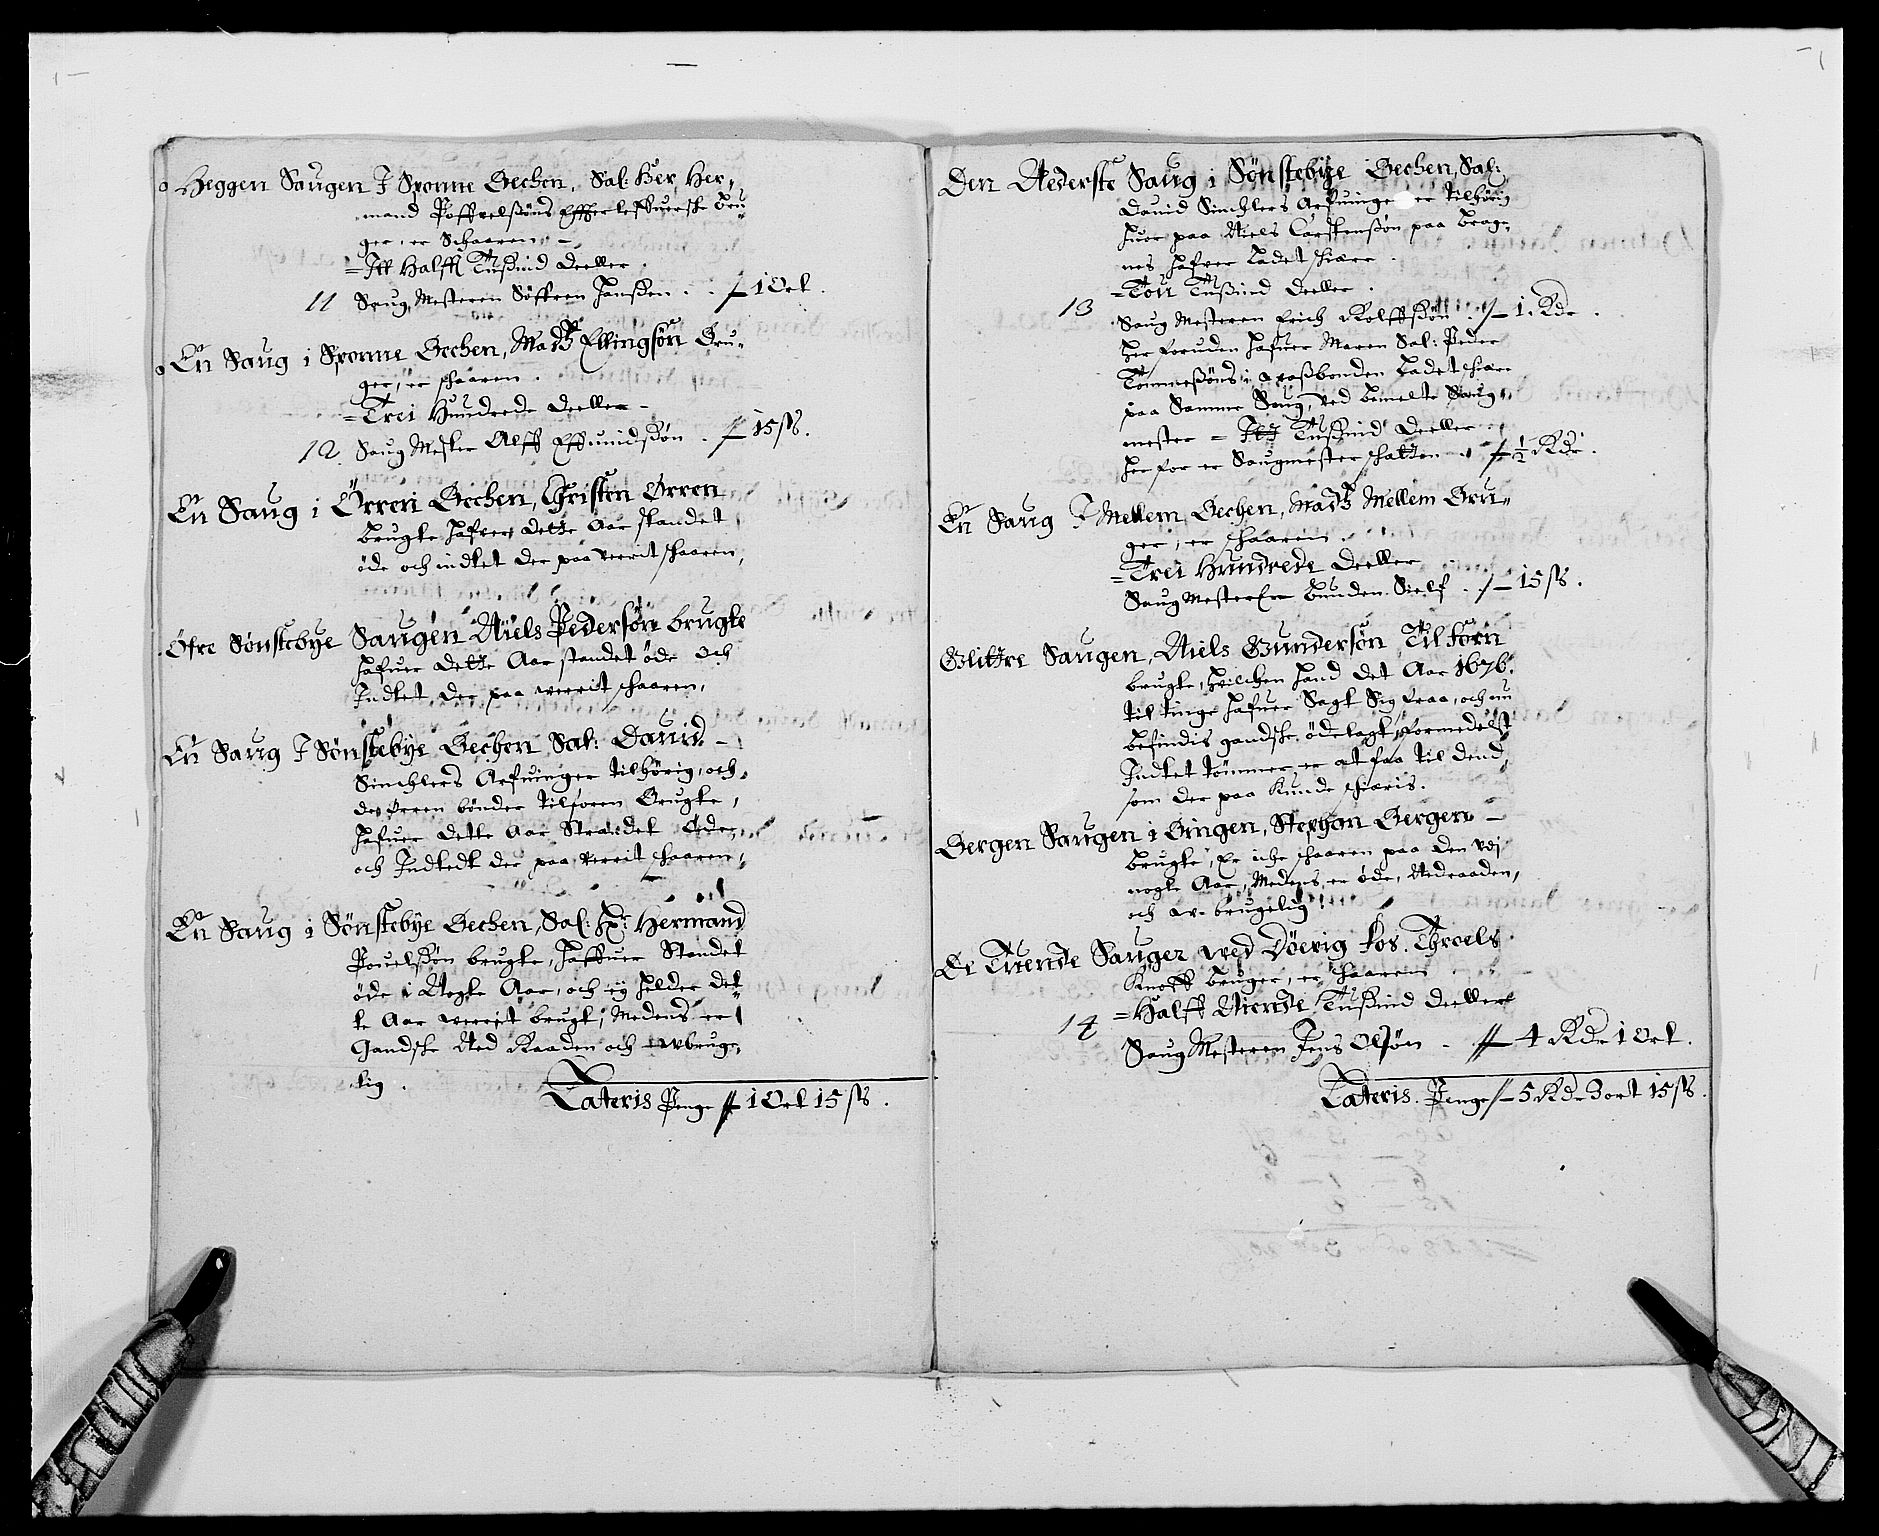 Heggen Saugen I Sponne Bechen, Sal: Her Her,,
mand Poffvelßøns Effterleffuerske bru,,
ger, er Schaaren, –
= Itt Halfft Tußind Deeller.
11 Saug Mesteren Söffren Hanßen . . // 1 Ort.
En Saug i Sponne Bechen, Madtz Ellingsøn Bru,,
ger, er skaaren.
= Trei Hundrede Deeller –
12. Saug Mester Alff Effuindßøn . // 15 ß.
En Saug i Örren Bechen, Christen Örren
brugte hafver dette Aar standet
öde och indtet der paa verrit skaaren,
Öfre Sönstebye Saugen Niels Pedersøn brugte
hafuer dette Aar standet öde och
Indtet der paa verrit skaaren,
En Saug I Sönstebye Bechen Sal: Dauid –
Sinchlers Arfuinger tilhörig, och
der Örren bönder tilforen Brugte,
hafuer dette Aar Standet Öde,
och Indtedt der paa verrit skaaren,
En Saug i Sönstebye Bechen, Sal: Hr: Hermand
Pouelßøn brugte, haffuer Standet
öde i Nogle Aar, och ej heller det,,
te Aar verrit brugt, Medens er
Gandske Ned Raaden och wbrug,,
lig.
Lateris Penge // 1 Ort 15 ß.
Den Nederste Saug i Sönstebye Bechen, Sal:
Dauid Sinchlers Arfuinger er tilhörig
huor paa Niels Carstenßøn paa Brag,,
nes hafver ladet skiære.
= Tou Tußind Deeller.
13 Saug Mesteren Erich Rolffßøn . // 1. Rdr.
Her foruden hafuer Maren Sal: Peder
Tommeßøns i ladet skiær
paa Samme Saug, ved bemelte Saug,,
mester = Itt Tußind Deeller
her for er Saugmester skatten . // ½ Rdr.
En Saug I Mellem Bechen, Madtz Mellem Bru,,
ger, er skaaren.
= Trei Hundrede Deeller
Saug Mester Er bunden Sielf . // 15 ß.
Glittre Saugen, Niels Gundersøn Tilforn
brugte, hvilchen hand det Aar 1676.
til tinge hafuer Sagt Sig fraa, och nu
befindis gandske öde lagt, formedelst
Indtet tömmer er at faa til dend,
som der paa kunde skiæris.
Bergen Saugen i Bingen, Stephan Bergen –
brugte, Er iche skaaren paa den vdj
nogle Aar, Medens er öde, Nedraaden,
och w-brugelig!
De Tuende Sauger wed Döevig fos. Throels
Knoff bruger, er skaaren
= Halff Niende Tußind deeller
14 Saug Mesteren Jens Olsøn – // 4 Rdr 1 Ort.
Lateris. Penge // 5 Rdr 3 ort 15 ß.